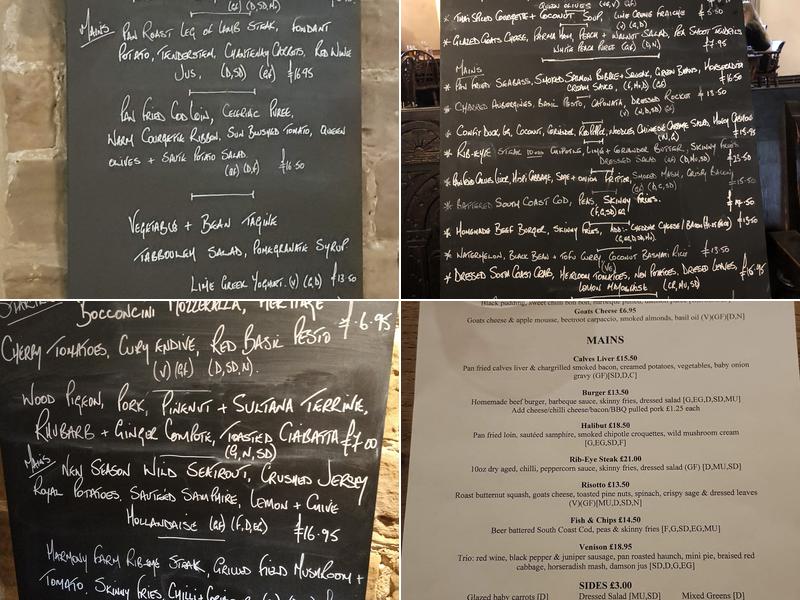 MAINS PAN ROAST LEG OF LAMB STEAK, FONDANT
POTATO, TENDERSTEM, CHANTENAY CARROTS, RED WINE
JUS, (D,SD) (GF) £16.95
PAN FRIED COD LOIN, CELERIAC PUREE,
WARM COURGETTE RIBBON, SUN BLUSHED TOMATO, QUEEN
OLIVES + SAUTE POTATO SALAD.
(GF) (D,F) £16.50
VEGETABLE + BEAN TAGINE
TABBOULEH SALAD, POMEGRANATE SYRUP
LIME GREEK YOGHURT. (V) (G,D) £13.50
* THAI SPICED COURGETTE + COCONUT SOUP, LIME CREME FRAICHE
(V) (D)
* GLAZED GOATS CHEESE, PARMA HAM, PEACH + WALNUT SALAD, PEA SHOOT
WHITE PEACH PUREE (GF) (D,N) £7.95
MAINS
* PAN FRIED SEABASS, SMOKED SALMON BUBBLE + SQUEAK, GREEN BEANS, HORSERADISH
CREAM SAUCE, £16.50
* CHARRED AUBERGINES, BASIL PESTO, CAPONATA, DRESSED ROCKET £13.50
* CONFIT DUCK LEG, COCONUT, CORIANDER, RED PEPPER, NOODLES
* RIB-EYE STEAK CHIPOTLE, LIME + CORIANDER BUTTER, SKINNY FRIES
DRESSED SALAD
* PAN FRIED CALVES LIVER, HISPI CABBAGE, SAGE + ONION FRITTER SMOKED MASH, CRISPY BACON
* BATTERED SOUTH COAST COD, PEAS, SKINNY FRIES.
* HOMEMADE BEEF BURGER, SKINNY FRIES, ADD:- CHEDDAR CHEESE / BACON £13.50
* WATERMELON, BLACK BEAN + TOFU CURRY, COCONUT BASMATI RICE £13.50
(VE)
* DRESSED SOUTH COAST CRAB, HEIRLOOM TOMATOES, NEW POTATOES, DRESSED LEAVES, £16.95
LEMON MAYONNAISE
BOCCONCINI MOZZERALLA, HERITAGE
CHERRY TOMATOES, CURLY ENDIVE, RED BASIL PESTO £6.95
(V) (GF) (D,SD,N).
WOOD PIGEON, PORK, PINENUT + SULTANA TERRINE,
RHUBARB + GINGER COMPOTE, TOASTED CIABATTA £7.00
(G,N,SD)
MAINS NEW SEASON WILD SEATROUT, CRUSHED JERSEY
ROYAL POTATOES, SAUTEED SAMPHIRE, LEMON + CHIVE
HOLLANDAISE (GF) (F,D,EG) £16.95
HARMONY FARM RIBEYE STEAK, GRILLED FIELD MUSHROOM +
TOMATO, SKINNY FRIES, CHILLI +
Goats Cheese £6.95
Goats cheese & apple mousse, beetroot carpaccio, smoked almonds, basil oil (V)(GF)[D,N]
MAINS
Calves Liver £15.50
Pan fried calves liver & chargrilled smoked bacon, creamed potatoes, vegetables, baby onion
gravy (GF)[SD,D,C]
Burger £13.50
Homemade beef burger, barbeque sauce, skinny fries, dressed salad [G,EG,D,SD,MU]
Add cheese/chilli cheese/bacon/BBQ pulled pork £1.25 each
Halibut £18.50
Pan fried loin, sautéed samphire, smoked chipotle croquettes, wild mushroom cream
[G,EG,SD,F]
Rib-Eye Steak £21.00
10oz dry aged, chilli, peppercorn sauce, skinny fries, dressed salad (GF) [D,MU,SD]
Risotto £13.50
Roast butternut squash, goats cheese, toasted pine nuts, spinach, crispy sage & dressed leaves
(V)(GF)[MU,D,SD,N]
Fish & Chips £14.50
Beer battered South Coast Cod, peas & skinny fries [F,G,SD,EG,MU]
Venison £18.95
Trio: red wine, black pepper & juniper sausage, pan roasted haunch, mini pie, braised red
cabbage, horseradish mash, damson jus [SD,D,G,EG]
SIDES £3.00
Glazed baby carrots [D] Dressed Salad [MU,SD] Mixed Greens [D]